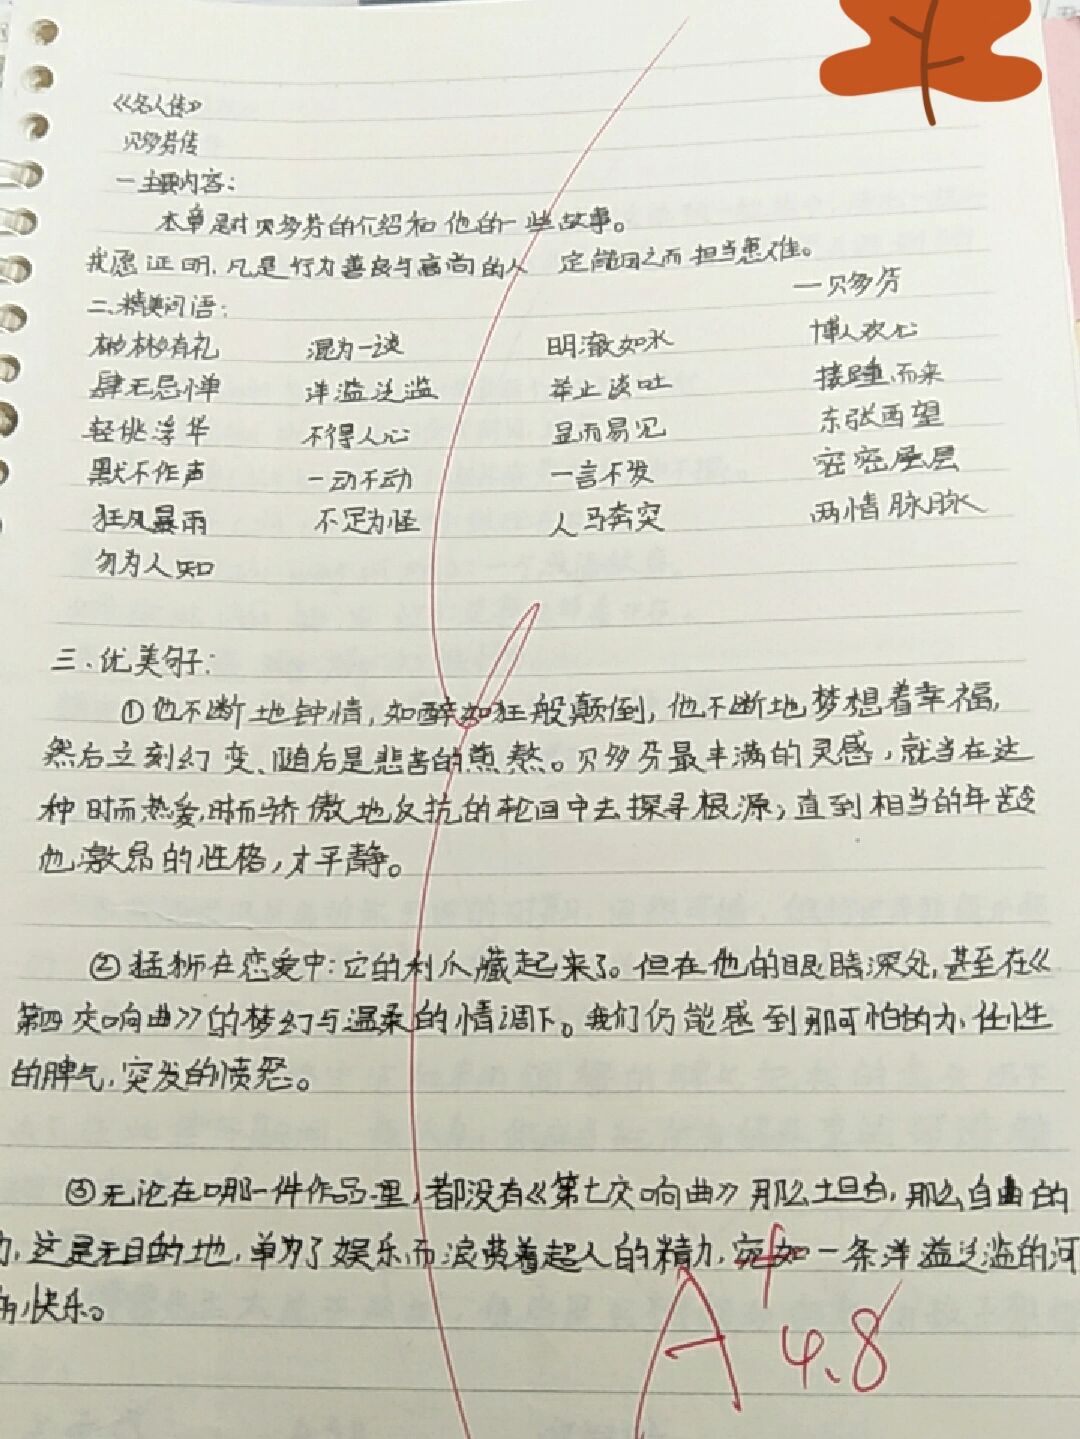 《名人传》
贝多芬传
一.主要内容：
本章是对贝多芬的介绍和他的一些故事。
我愿证明，凡是行为善良与高尚的人 定能因之而担当患难。
—贝多芬
二.精美词语：
彬彬有礼 混为一谈 明澈如水 博人欢心
肆无忌惮 洋溢泛滥 举止谈吐 接踵而来
轻佻浮华 不得人心 显而易见 东张西望
默不作声 一动不动 一言不发 密密层层
狂风暴雨 不足为怪 人马奔突 两情脉脉
勿为人知
三.优美句子：
①他不断地钟情，如醉如狂般颠倒，他不断地梦想着幸福，
然后立刻幻变、随后是悲苦的煎熬。贝多芬最丰满的灵感，就当在这
种时而热爱，时而骄傲地反抗的轮回中去探寻根源；直到相当的年龄
他激昂的性格，才平静。
②猛狮在恋爱中：它的利爪藏起来了。但在他的眼睛深处，甚至在《
第四交响曲》的梦幻与温柔的情调下。我们仍能感到那可怕的力、任性
的脾气，突发的愤怒。
③无论在哪一件作品里，都没有《第七交响曲》那么坦白，那么自由的
力，这是无目的地，单为了娱乐而浪费着超人的精力，宛如一条洋溢泛滥的河
的快乐。
A+
4.8